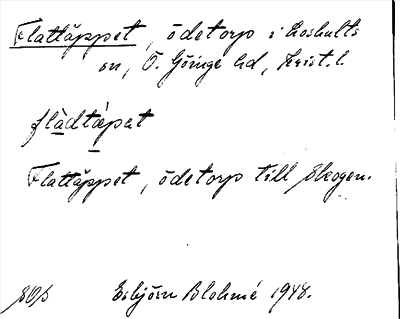 Flattäppet, ödetorp i Loshults
sn, Ö. Göinge hd, Krist. l.
flàdtápat
Flattäppet, ödetorp till Skogen.
Esbjörn Blohmé 1948.